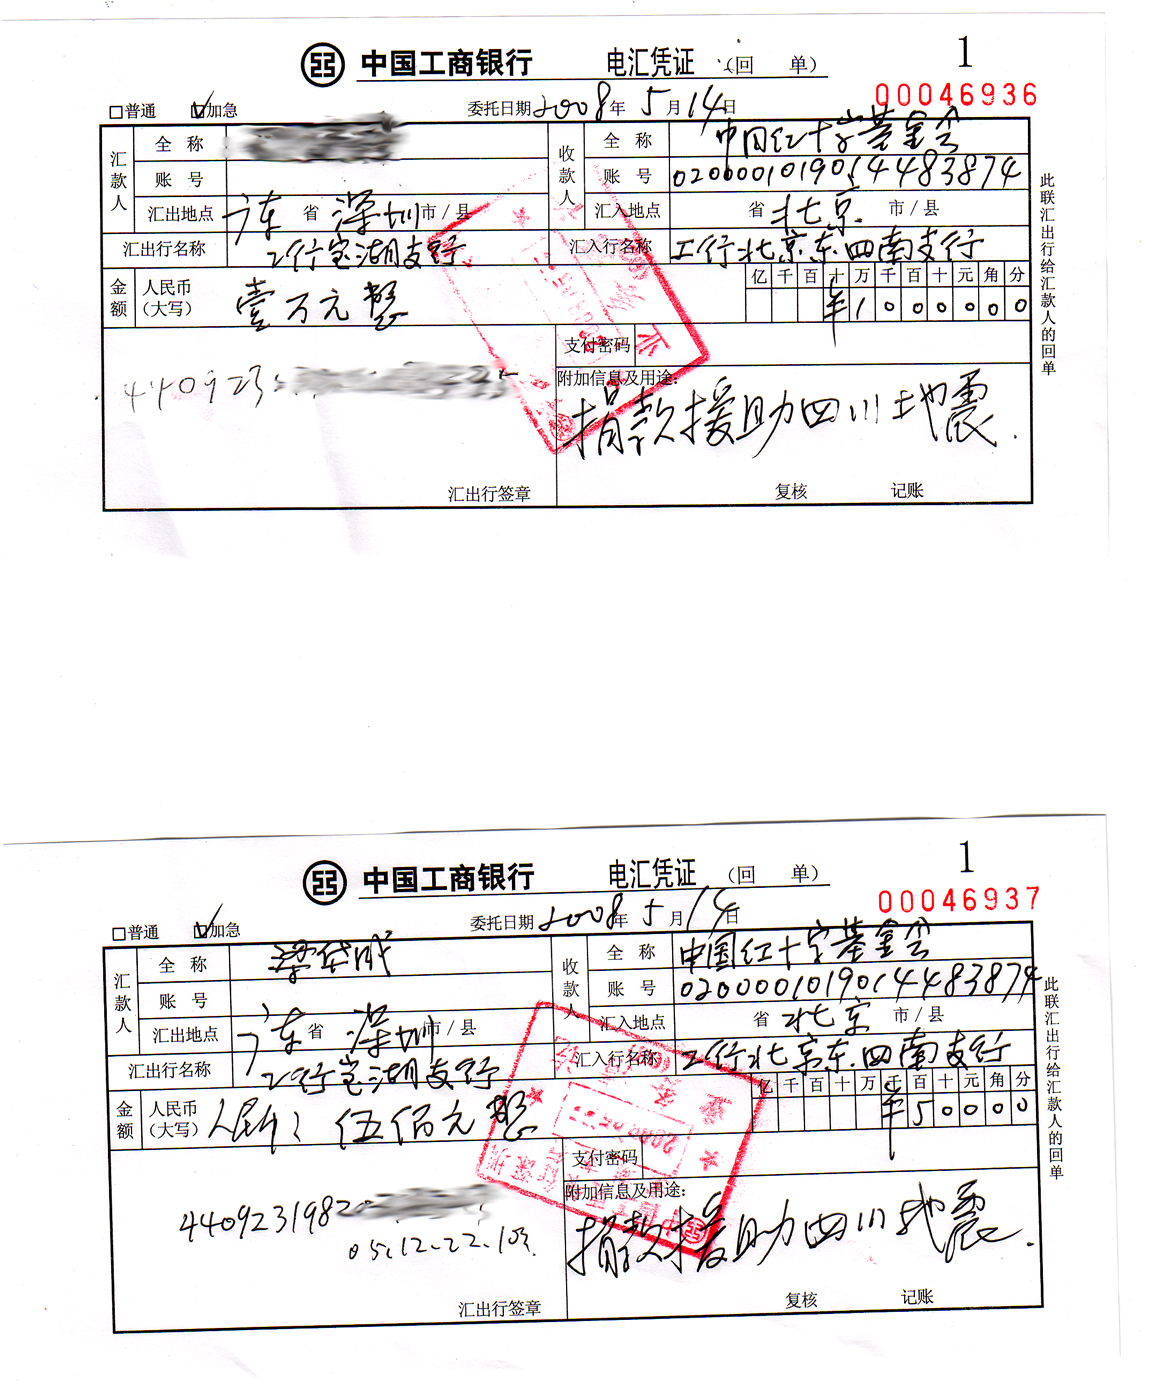 中国工商银行 电汇凭证 （回 单） 1
00046936
普通 加急 委托日期 2008 年 5 月 14 日
汇款人 全 称 收款人 全 称 中国红十字基金会
账 号 账 号 0200001019014483874
汇出地点 广东 省 深圳 市/县 汇入地点 省 北京 市/县
汇出行名称 工行宝湖支行 汇入行名称 工行北京东四南支行
金额 人民币（大写） 壹万元整 亿 千 百 十 万 千 百 十 元 角 分
¥1000000
支付密码
440923
附加信息及用途：
捐款援助四川地震.
汇出行签章 复核 记账
此联汇出行给汇款人的回单
中国工商银行 电汇凭证 （回 单） 1
00046937
普通 加急 委托日期 2008 年 5 月 14 日
汇款人 全 称 收款人 全 称 中国红十字基金会
账 号 账 号 0200001019014483874
汇出地点 广东 省 深圳 市/县 汇入地点 省 北京 市/县
汇出行名称 工行宝湖支行 汇入行名称 工行北京东四南支行
金额 人民币（大写） 人民币: 伍佰元整 亿 千 百 十 万 千 百 十 元 角 分
¥50000
支付密码
4409231982
05.12-22.
附加信息及用途：
捐款援助四川地震.
汇出行签章 复核 记账
此联汇出行给汇款人的回单